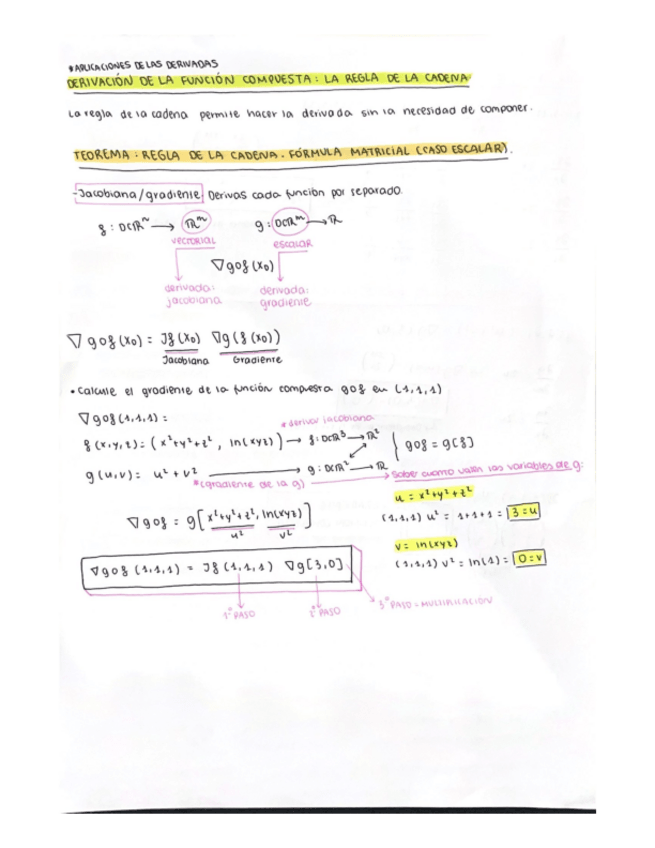 *APLICACIONES DE LAS DERIVADAS
DERIVACIÓN DE LA FUNCIÓN COMPUESTA: LA REGLA DE LA CADENA
La regla de la cadena permite hacer la derivada sin la necesidad de componer.
TEOREMA: REGLA DE LA CADENA. FÓRMULA MATRICIAL (CASO ESCALAR).
-Jacobiana/gradiente Derivas cada función por separado.
f: D⊂ℝⁿ → ℝᵐ g: D⊂ℝᵐ → ℝ
VECTORIAL escalar
∇gof(x₀)
derivada: jacobiana
derivada: gradiente
∇gof(x₀) = Jf(x₀) ∇g(f(x₀))
Jacobiana Gradiente
• Calcule el gradiente de la función compuesta gof en (1,1,1)
∇gof(1,1,1) =
*derivar jacobiana
f(x,y,z) = (x²+y²+z², ln(xyz)) → f: D⊂ℝ³ → ℝ² } gof = g[f]
g(u,v) = u²+v² → g: D⊂ℝ² → ℝ
*(gradiente de la g) → Saber cuanto valen las variables de g:
u = x²+y²+z²
∇gof = g[x²+y²+z², ln(xyz)]
u² v²
(1,1,1) u² = 1+1+1 = 3=u
v = ln(xyz)
(1,1,1) v² = ln(1) = 0=v
∇gof(1,1,1) = Jf(1,1,1) ∇g[3,0]
1º PASO 2º PASO 3º PASO = MULTIPLICACIÓN